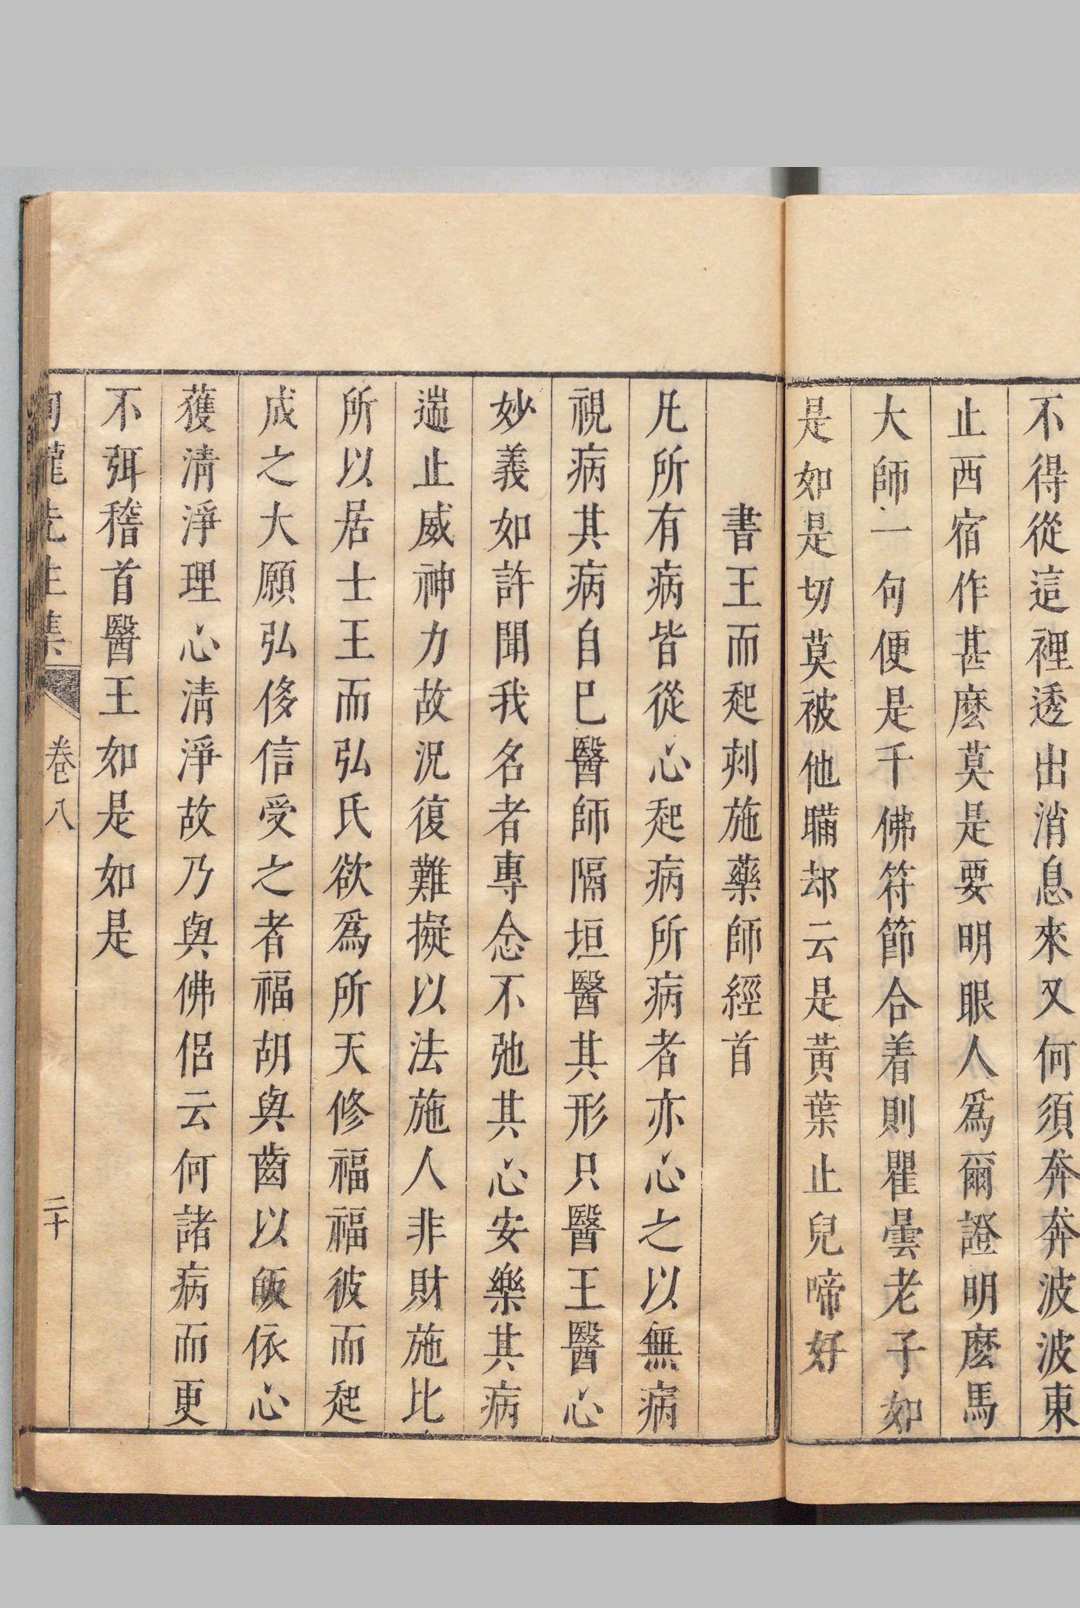 不得從這裡透出消息來又何須奔奔波波東
止西宿作甚麽莫是要明眼人爲爾證明麽馬
大師一句便是千佛符節合着則瞿曇老子如
是如是切莫被他瞞却云是黃葉止兒啼好
書王而起刺施藥師經首
凡所有病皆從心起病所病者亦心之以無病
視病其病自已醫師隔垣醫其形只醫王醫心
妙義如許聞我名者專念不弛其心安樂其病
遄止威神力故況復難擬以法施人非財施比
所以居士王而弘氏欲爲所天修福福彼而起
成之大願弘侈信受之者福胡與齒以皈依心
獲清淨理心清淨故乃與佛侶云何諸病而更
不弭稽首醫王如是如是
先生集 卷八 二十